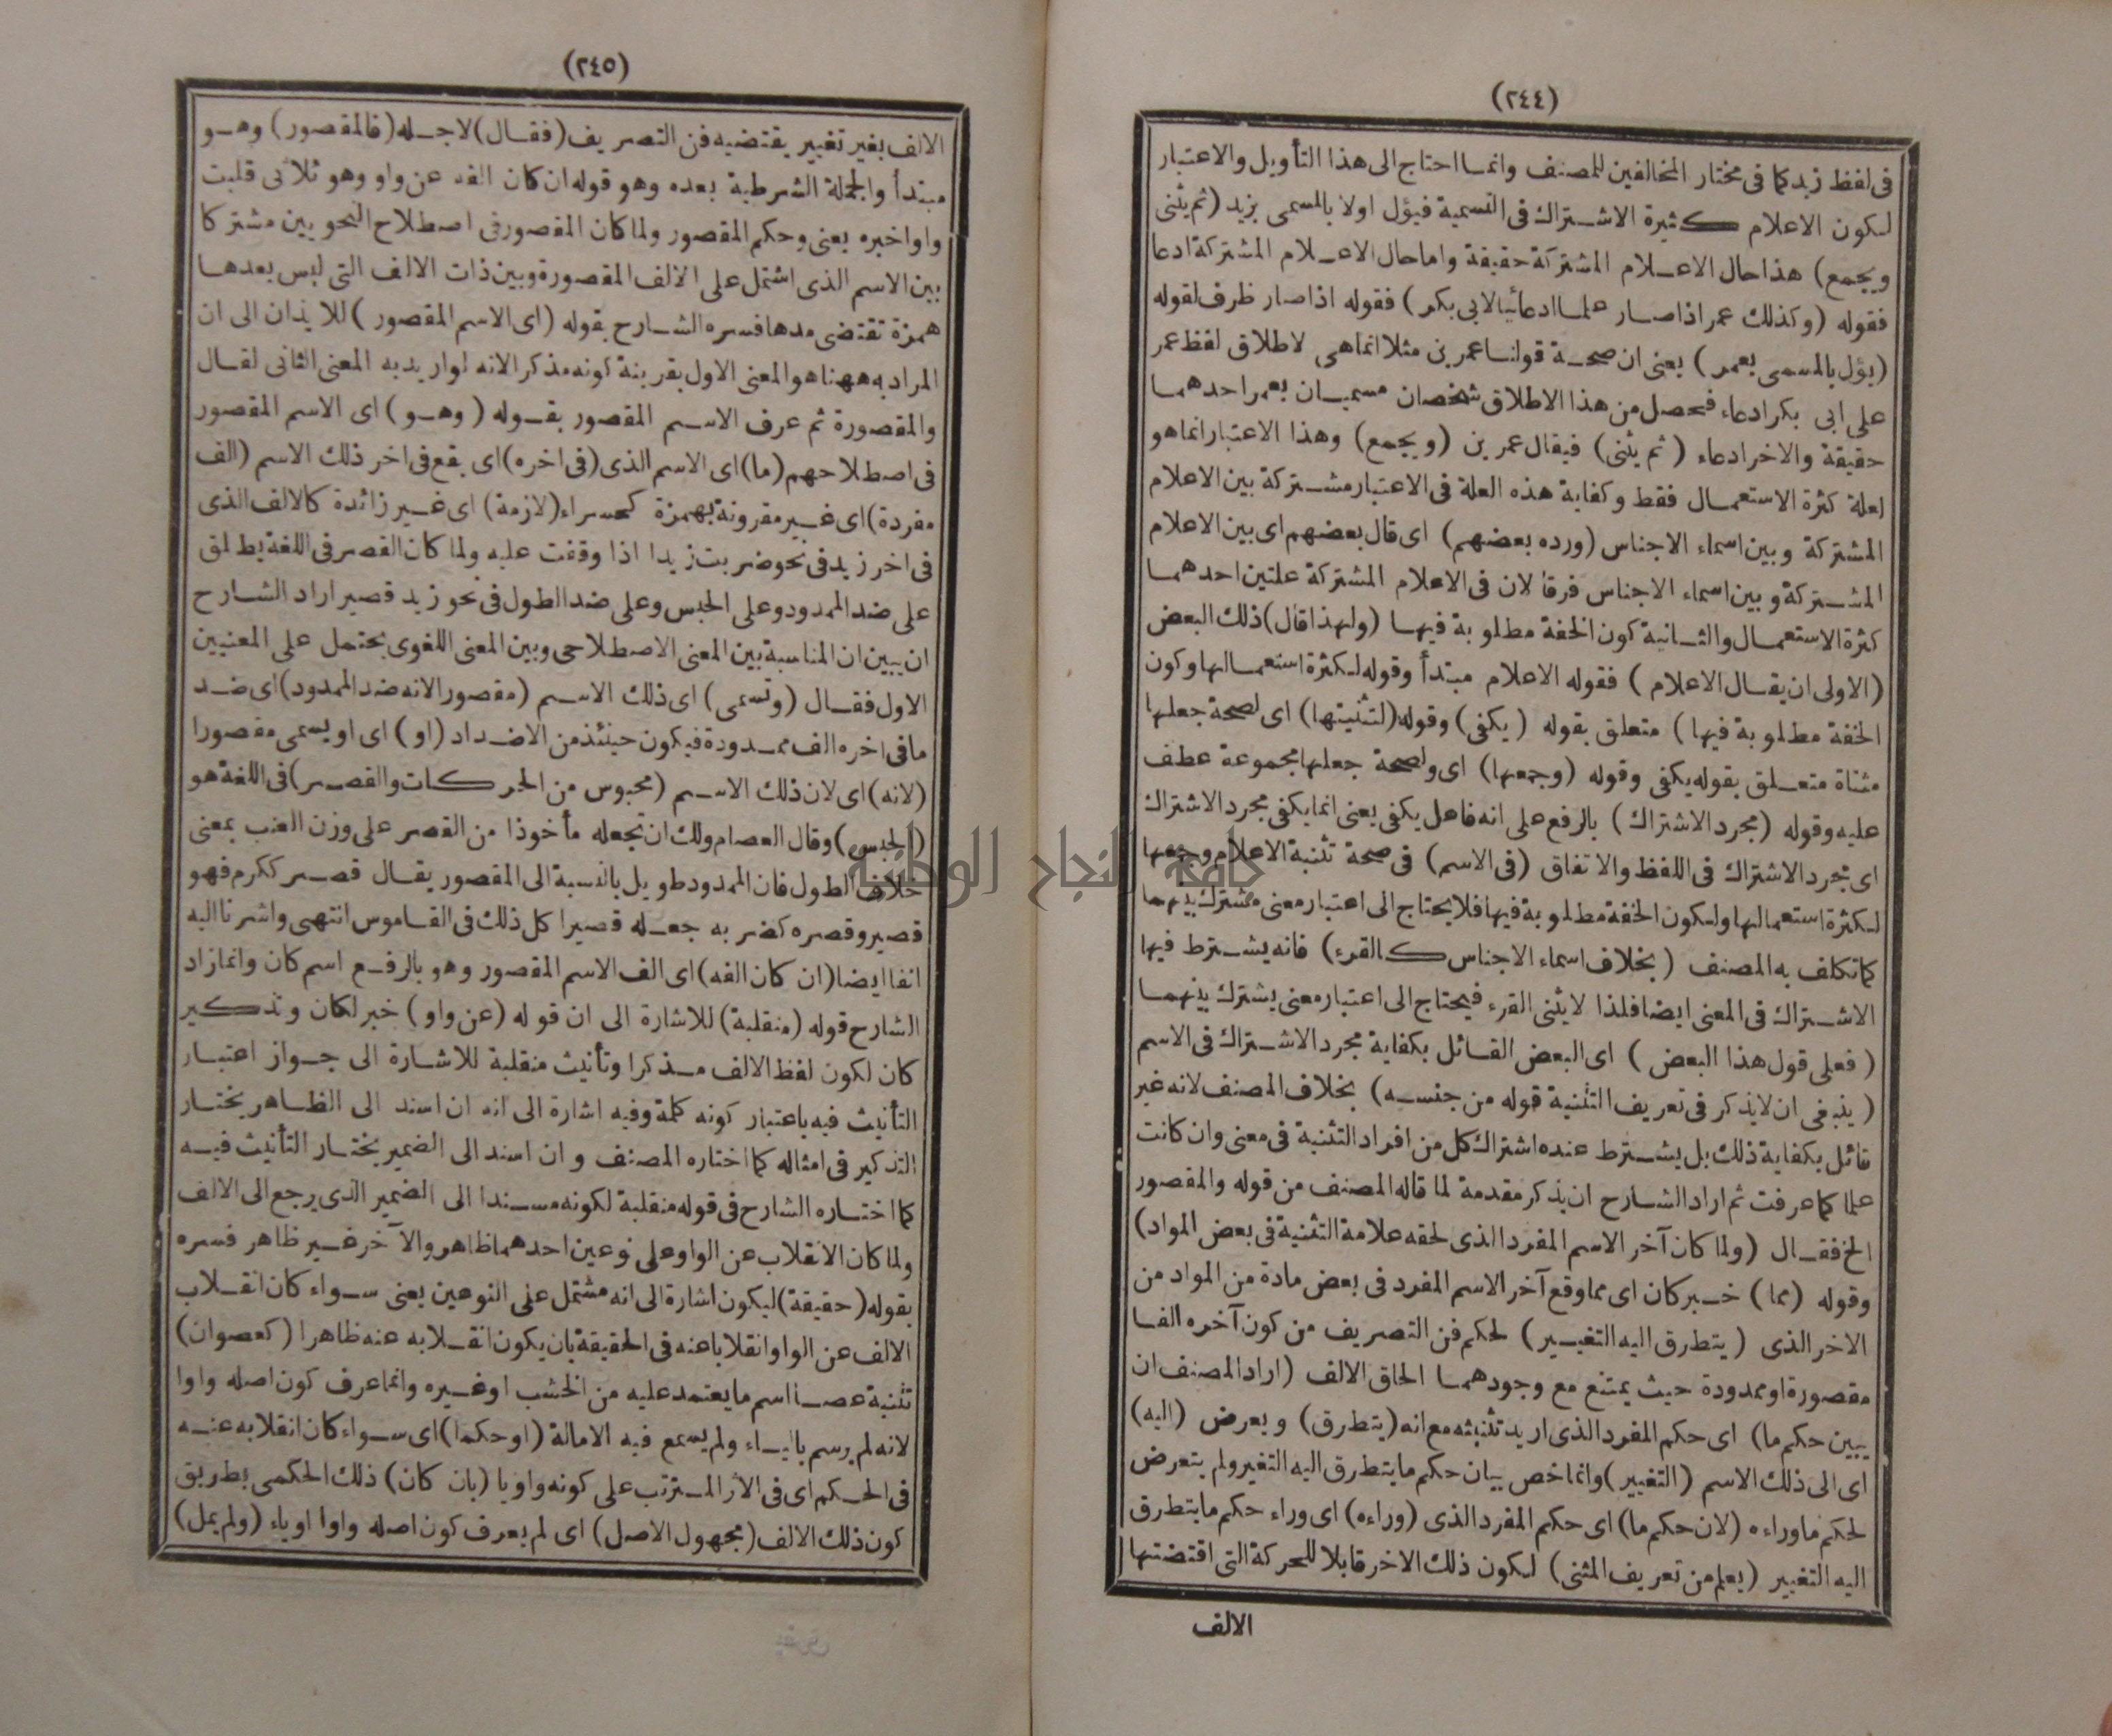 (٢٤٤)
فى لفظ زيد كما فى مختار المخالفين للمصنف وانما احتاج الى هذا التأويل والاعتبار
لكون الاعلام كثيرة الاشتراك فى التسمية فيؤل اولا بالمسمى بزيد (ثم يثنى
ويجمع) هذا حال الاعلام المشتركة حقيقة واما حال الاعلام المشتركة ادعا
فقوله (وكذلك عمر اذا صار علما ادعائيا لابى بكر) فقوله اذا صار ظرف لقوله
(يؤل بالمسمى بعمر) يعنى ان صحة قولنا عمرين مثلا انما هى لاطلاق لفظ عمر
على ابى بكر ادعاء فحصل من هذا الاطلاق شخصان مسميان بعمر احدهما
حقيقة والاخر ادعاء (ثم يثنى) فيقال عمرين (ويجمع) وهذا الاعتبار انما هو
لعلة كثرة الاستعمال فقط وكفاية هذه العلة فى الاعتبار مشتركة بين الاعلام
المشتركة وبين اسماء الاجناس (ورده بعضهم) اى قال بعضهم اى بين الاعلام
المشتركة وبين اسماء الاجناس فرقا لان فى الاعلام المشتركة علتين احدهما
كثرة الاستعمال والثانية كون الخفة مطلوبة فيها (ولهذا قال) ذلك البعض
(الاولى ان يقال الاعلام) فقوله الاعلام مبتدأ وقوله لكثرة استعمالها وكون
الخفة مطلوبة فيها) متعلق بقوله (يكفى) وقوله (لتثنيتها) اى لصحة جعلها
مثناة متعلق بقوله يكفى وقوله (وجمعها) اى ولصحة جعلها مجموعة عطف
عليه وقوله (مجرد الاشتراك) بالرفع على انه فاعل يكفى يعنى انما يكفى مجرد الاشتراك
اى مجرد الاشتراك فى اللفظ والاتفاق (فى الاسم) فى صحة تثنية الاعلام وجمعها
لكثرة استعمالها ولكون الخفة مطلوبة فيها فلا يحتاج الى اعتبار معنى مشترك بينهما
كما تكلف به المصنف (بخلاف اسماء الاجناس كالقرء) فانه يشترط فيها
الاشتراك فى المعنى ايضا فلذا لا يثنى القرء فيحتاج الى اعتبار معنى يشترك بينهما
(فعلى قول هذا البعض) اى البعض القائل بكفاية مجرد الاشتراك فى الاسم
(ينبغى ان لا يذكر فى تعريف التثنية قوله من جنسه) بخلاف المصنف لانه غير
قائل بكفاية ذلك بل يشترط عنده اشتراك كل من افراد التثنية فى معنى وان كانت
علما كما عرفت ثم اراد الشارح ان يذكر مقدمة لما قاله المصنف من قوله والمقصور
الخ فقال (ولما كان آخر الاسم المفرد الذى لحقه علامة التثنية فى بعض المواد)
وقوله (مما) خبر كان اى مما وقع آخر الاسم المفرد فى بعض مادة من المواد من
الاخر الذى (يتطرق اليه التغيير) لحكم فن التصريف من كون آخره الفا
مقصورة او ممدودة حيث يمتنع مع وجودهما الحاق الالف (اراد المصنف ان
يبين حكم ما) اى حكم المفرد الذى اريد تثنيته مع انه (يتطرق) ويعرض (اليه)
اى الى ذلك الاسم (التغيير) وانما خص بيان حكم ما يتطرق اليه التغير ولم يتعرض
لحكم ما وراءه (لان حكم ما) اى حكم المفرد الذى (وراءه) اى وراء حكم ما يتطرق
اليه التغيير (يعلم من تعريف المثنى) لكون ذلك الاخر قابلا للحركة التى اقتضتها
الالف
(٢٤٥)
الالف بغير تغيير يقتضيه فن التصريف (فقال) لاجله (فالمقصور) وهو
مبتدأ والجملة الشرطية بعده وهو قوله ان كان الفه عن واو وهو ثلاثى قلبت
واوا خبره يعنى وحكم المقصور ولما كان المقصور فى اصطلاح النحويين مشتركا
بين الاسم الذى اشتمل على الالف المقصورة وبين ذات الالف التى ليس بعدها
همزة تقتضى مدها فسره الشارح بقوله (اى الاسم المقصور) للايذان الى ان
المراد به ههنا هو المعنى الاول بقرينة كونه مذكرا لانه لو اريد به المعنى الثانى لقال
والمقصورة ثم عرف الاسم المقصور بقوله (وهو) اى الاسم المقصور
فى اصطلاحهم (ما) اى الاسم الذى (فى اخره) اى يقع فى اخر ذلك الاسم (الف
مفردة) اى غير مقرونة بهمزة كحمراء (لازمة) اى غير زائدة كالالف الذى
فى اخر زيد فى نحو ضربت زيدا اذا وقفت عليه ولما كان القصر فى اللغة يطلق
على ضد الممدود وعلى الحبس وعلى ضد الطول فى نحو زيد قصير اراد الشارح
ان يبين ان المناسبة بين المعنى الاصطلاحى وبين المعنى اللغوى يحتمل على المعنيين
الاول فقال (وتسمى) اى ذلك الاسم (مقصورا لانه ضد الممدود) اى ضد
ما فى اخره الف ممدودة فيكون حينئذ من الاضداد (او) اى او يسمى مقصورا
(لانه) اى لان ذلك الاسم (محبوس من الحركات والقصر) فى اللغة هو
(الحبس) وقال العصام ولك ان تجعله مأخوذا من القصر على وزن العنب بمعنى
خلاف الطول فان الممدود طويل بالنسبة الى المقصور يقال قصر ككرم فهو
قصير وقصره كضربه جعله قصيرا كل ذلك فى القاموس انتهى واشرنا اليه
انفا ايضا (ان كان الفه) اى الف الاسم المقصور وهو بالرفع اسم كان وانما زاد
الشارح قوله (منقلبة) للاشارة الى ان قوله (عن واو) خبر لكان وتذكير
كان لكون لفظ الالف مذكرا وتأنيث منقلبة للاشارة الى جواز اعتبار
التأنيث فيه باعتبار كونه كلمة وفيه اشارة الى انه ان اسند الى الظاهر يختار
التذكير فى امثاله كما اختاره المصنف وان اسند الى الضمير يختار التأنيث فيه
كما اختاره الشارح فى قوله منقلبة لكونه مسندا الى الضمير الذى يرجع الى الالف
ولما كان الانقلاب عن الواو على نوعين احدهما ظاهر والآخر غير ظاهر فسره
بقوله (حقيقة) ليكون اشارة الى انه مشتمل على النوعين يعنى سواء كان انقلاب
الالف عن الواو انقلابا عنه فى الحقيقة بان يكون انقلابه عنه ظاهرا (كعصوان)
تثنية عصا اسم ما يعتمد عليه من الخشب او غيره وانما عرف كون اصله واوا
لانه لم يرسم بالياء ولم يسمع فيه الامالة (او حكما) اى سواء كان انقلابه عنه
فى الحكم اى فى الاثر المترتب على كونه واويا (بان كان) ذلك الحكمى بطريق
كون ذلك الالف (مجهول الاصل) اى لم يعرف كون اصله واوا او ياء (ولم يمل)
جامعة النجاح الوطنية